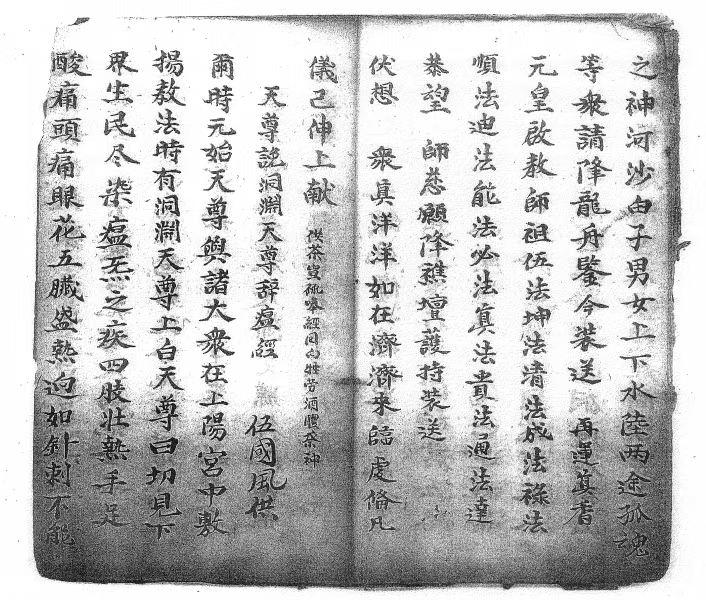 之神河沙白子男女上下水陸兩途孤魂
等衆請降龍舟鑒今裝送 再運真香
元皇啟教師祖伍法坤法清法成法祿法
順法迪法能法必法真法貴法通法達
恭望 師慈願降醮壇護持裝送
伏想 衆真洋洋如在濟濟來臨虔脩凡
儀己伸上献 回向牲肴酒醴奈神
天尊說洞淵天尊辞瘟經 伍國風供
爾時元始天尊與諸大衆在上陽宮中敷
揚教法時有洞淵天尊上白天尊曰切見下
界生民尽染瘟炁之疾四肢壮熱手足
酸痛頭痛眼花五臟盛熱逈如針刺不能